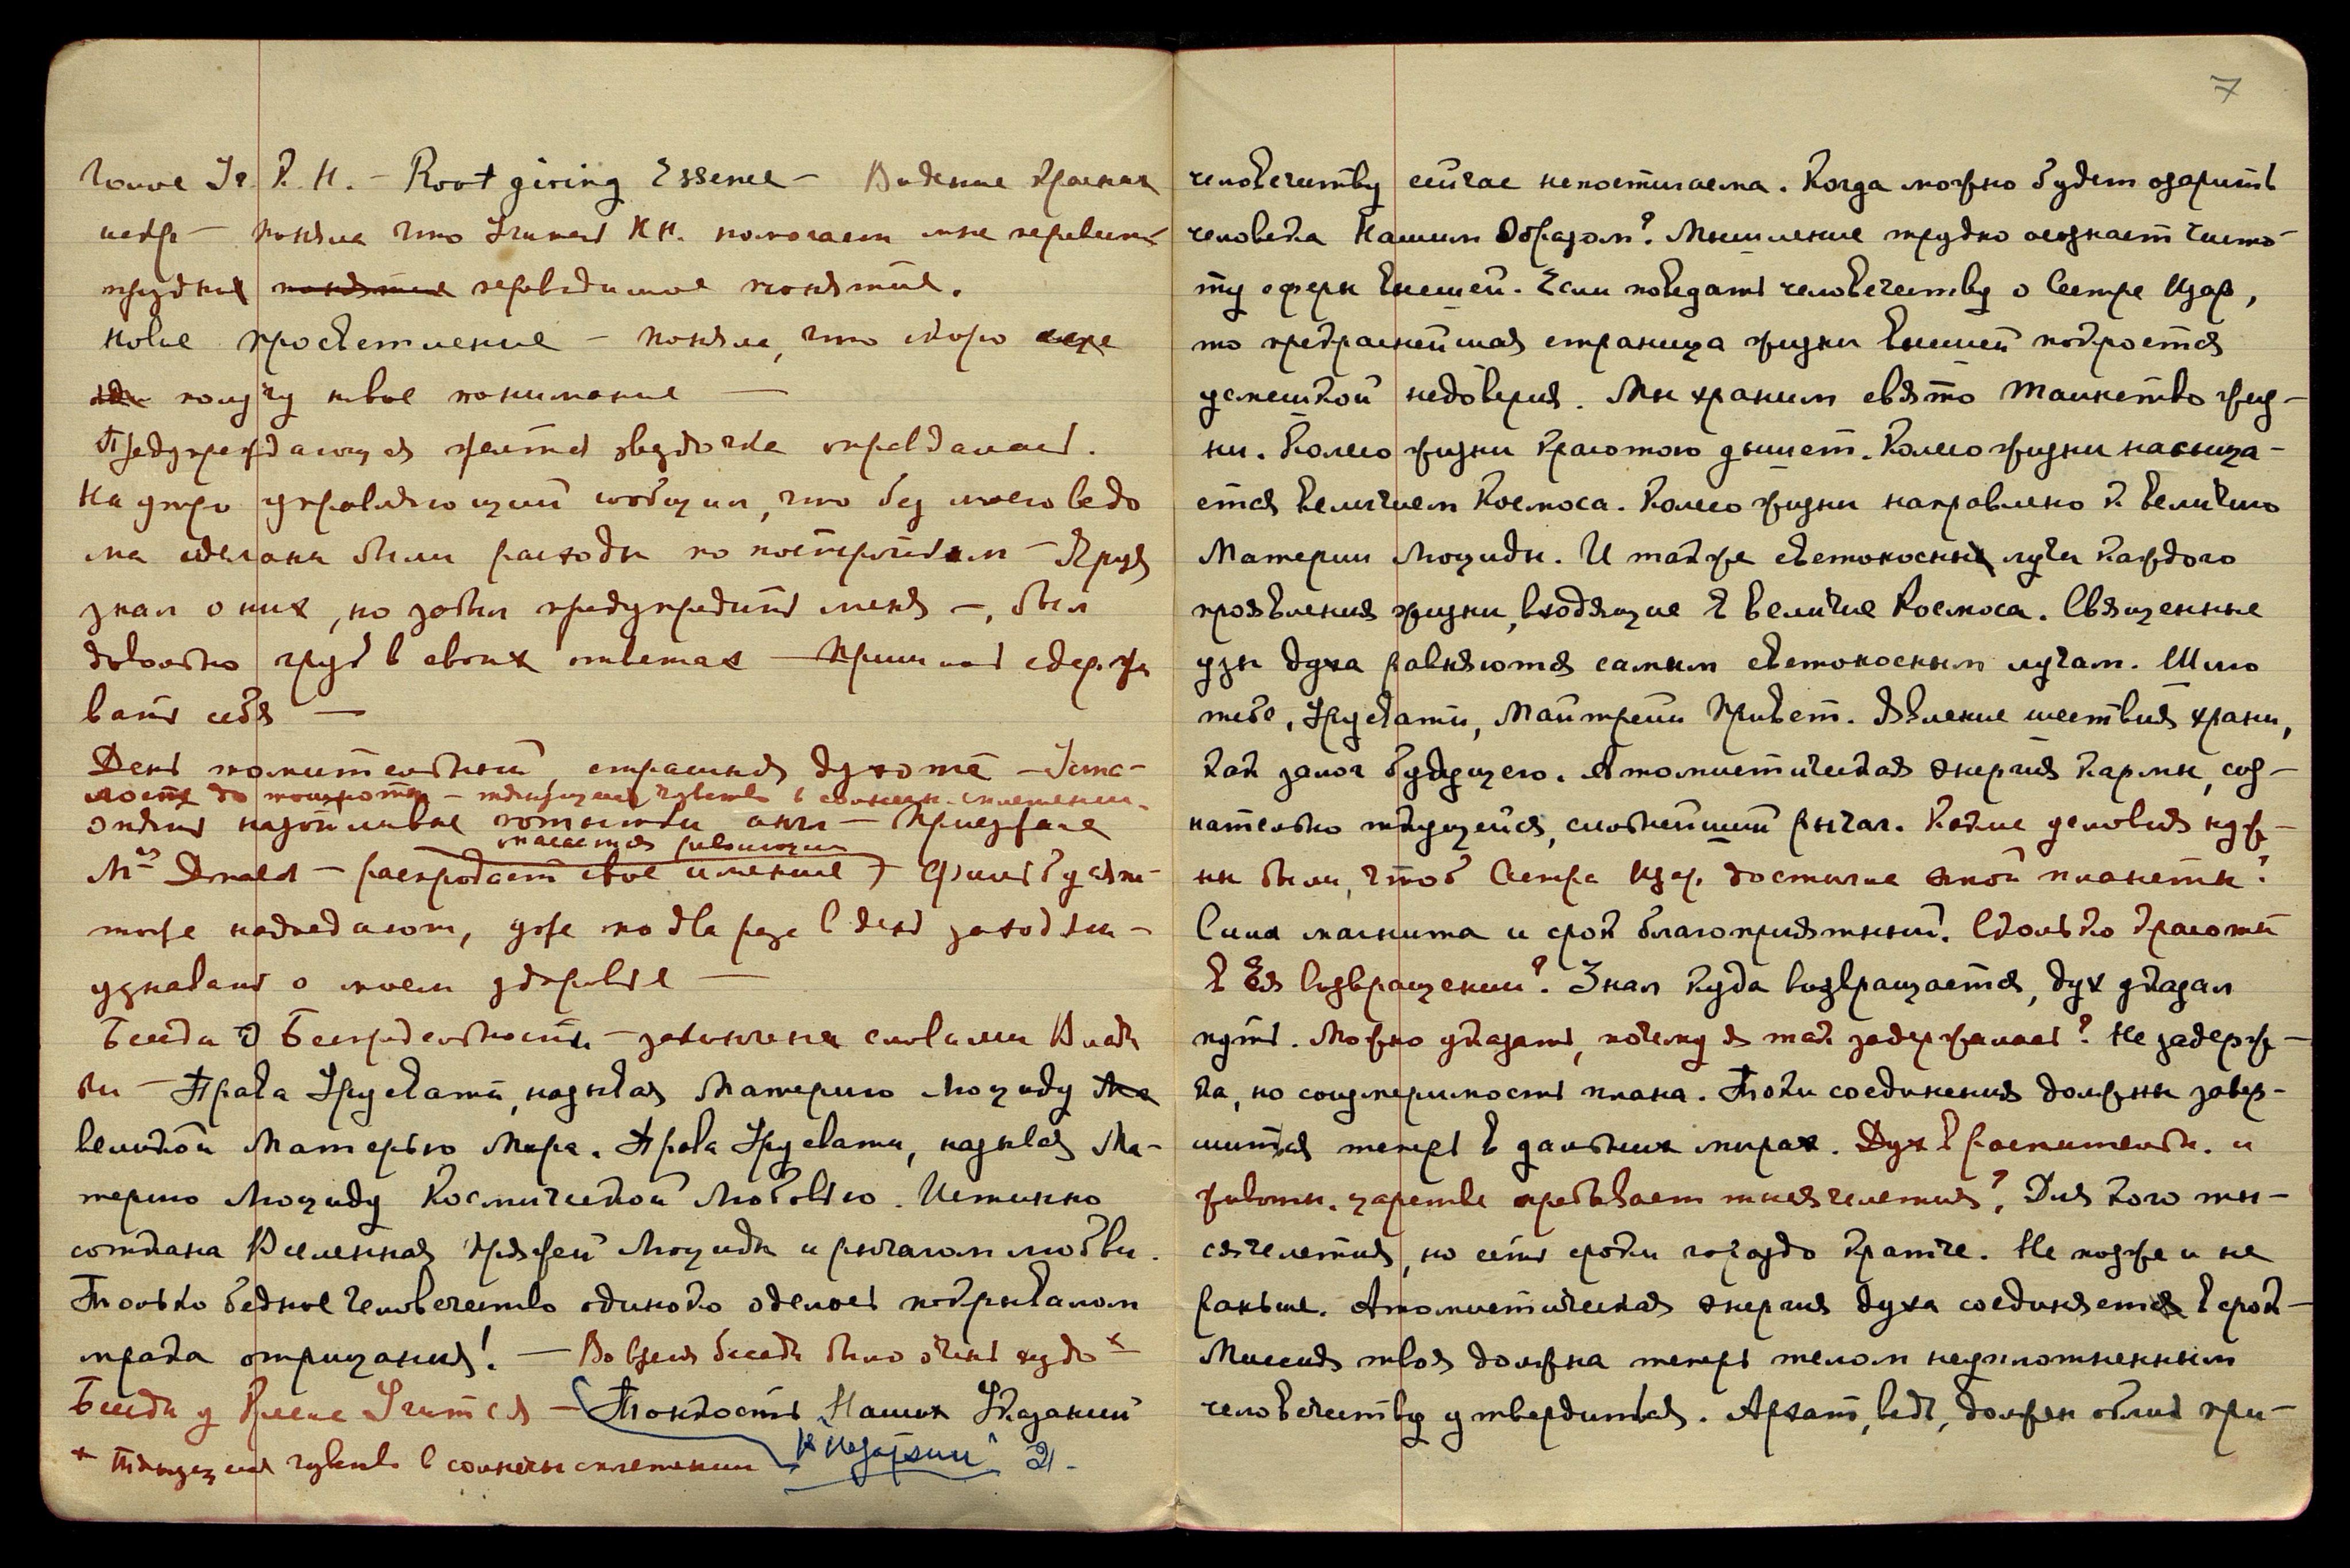 7
К. Н. – Root giving Essence – Видение красная
искр – поняла что К.Н. помогает мне
трудные понятия.
новое просветление – поняла, что скоро
получу новое понимание —
Предупреждающая желтая звездочка оправдалась.
На утро управляющий сообщил, что без моего ведо
ма сделаны были расходы по постройкам –
знал о них, но забыл предупредить меня –, был
довольно груб в своих ответах — Пришлось сдержи
вать себя —
День томительный, страшная духота – Уста-
лость до тошноты – тянущее чувство в солнечн. сплетении.
опять назойливые – Приезжала
опасается революции
Mrs Donald – распродает свое имение)
тоже надоедают, уже по два раза в день заходят
узнавать о моем здоровье —
Беседа о Беспредельности – закончена словами Влады
ки – Права Урусвати, называя Материю Люциду
великой Матерью Мира. Права Урусвати, называя Ма-
терию Люциду Космической Любовью. Истинно
соткана Вселенная пряжей Люциды и рычагом любви.
Только бедное человечество одиноко оделось покрывалом
мрака отрицания! – Во время беседы было очень худо*
Беседы у – Тонкость Наших Указаний
* Тянущее чувство в солнечн сплетении
человечеству сейчас непостигаема. Когда можно будет озарить
человека Нашим Образом? Мышление трудно осознает чисто-
ту сферы высшей. Если поведать человечеству о Сестре Изар,
то прекраснейшая страница жизни высшей покроется
усмешкой недоверия. Мы храним свято таинство жиз-
ни. Колесо жизни красотою дышет. Колесо жизни насыща-
ется величием Космоса. Колесо жизни направлено к величию
Материи Люциды. И также светоносны лучи каждого
проявления жизни, входящие в величие Космоса. Священные
узы духа равняются самым светоносным лучам. Шлю
тебе, Урусвати, Майтрейи Привет. Явление шествия храни,
как залог будущего. Атомистическая энергия кармы, соз-
нательно ткущейся, сильнейший рычаг. Какие условия нуж-
ны были, чтоб Сестра Изар. достигла этой планеты?
Сила магнита и срок благоприятный. Сколько красоты
в Ея возвращении? Знал куда возвращается, дух указал
путь. Можно указать, почему я так задержалась? Не задерж-
ка, но соизмеримость плана. Токи соединения должны завер-
шиться теперь в дальних мирах. Дух в растительн. и
животн. царстве пребывает тысячелетия? Для кого ты-
сячелетия, но есть сроки гораздо кратче. Не позже и не
раньше. Атомистическая энергия духа соединяется в срок –
Миссия твоя должна теперь телом неуплотненным
человечеству утвердиться. Архат, ведь, должен облик при-